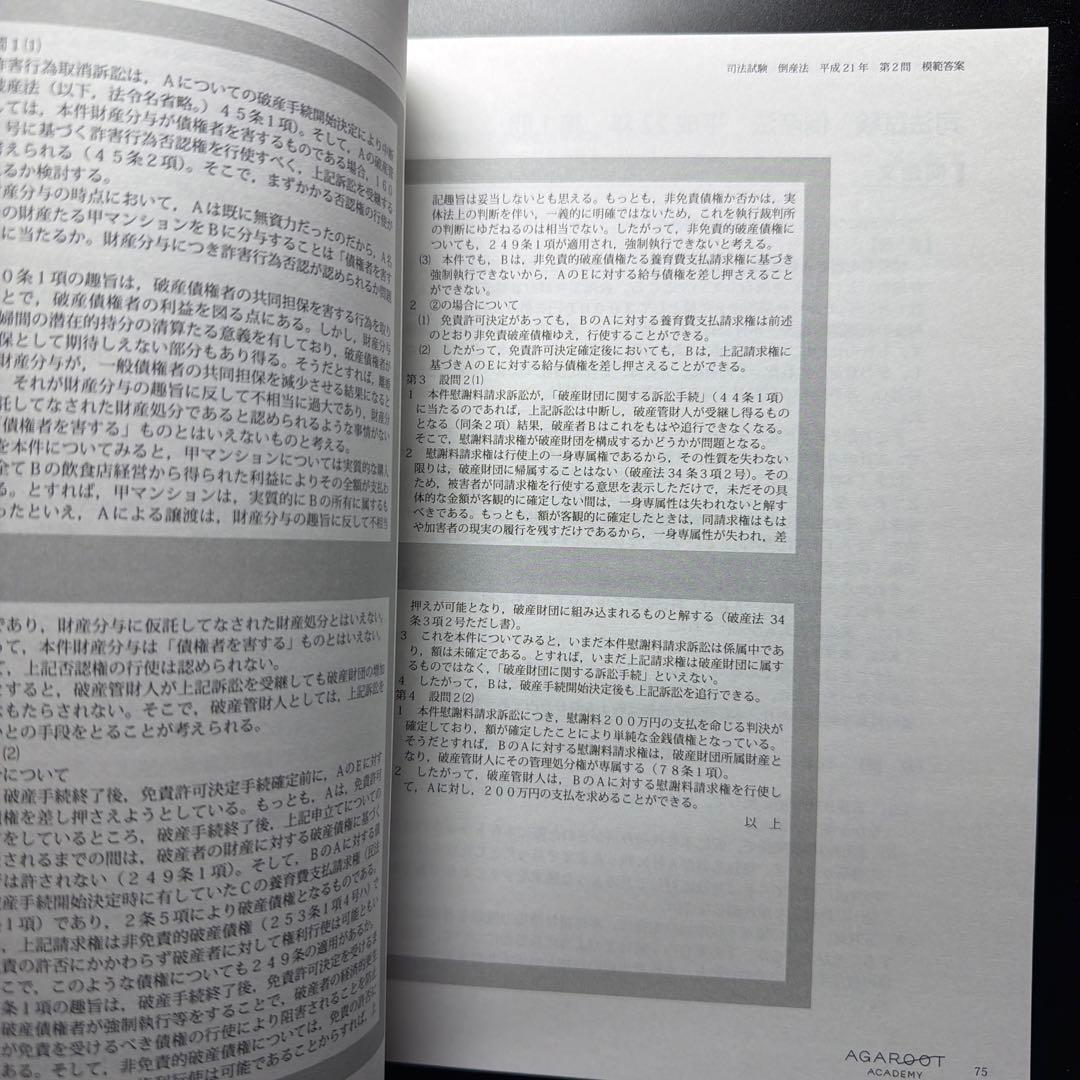 問1(1)
詐害行為取消訴訟は，Aについての破産手続開始決定により中断
破産法（以下，法令名省略。）45条1項）。そして，Aの破産管
しては，本件財産分与が債権者を害するものである場合，160
号に基づく詐害行為否認権を行使すべく，上記訴訟を受継する
考えられる（45条2項）。そこで，まずかかる否認権の行使が
るか検討する。
財産分与の時点において，Aは既に無資力だったのだから，A名
の財産たる甲マンションをBに分与することは「債権者を害す
に当たるか。財産分与につき詐害行為否認が認められるか問題
0条1項の趣旨は，破産債権者の共同担保を害する行為を取り
とで，破産債権者の利益を図る点にある。しかし，財産分与
婦間の潜在的持分の清算たる意義を有しており，破産債権者が
保として期待しえない部分もあり得る。そうだとすれば，離婚
財産分与が，一般債権者の共同担保を減少させる結果になると
，それが財産分与の趣旨に反して不相当に過大であり，財産分
託してなされた財産処分であると認められるような事情がない
「債権者を害する」ものとはいえないものと考える。
を本件についてみると，甲マンションについては実質的な購入
全てBの飲食店経営から得られた利益によりその全額が支払わ
る。とすれば，甲マンションは，実質的にBの所有に属するも
ったといえ，Aによる譲渡は，財産分与の趣旨に反して不相当
であり，財産分与に仮託してなされた財産処分とはいえない。
って，本件財産分与は「債権者を害する」ものとはいえない。
て，上記否認権の行使は認められない。
とすると，破産管財人が上記訴訟を受継しても破産財団の増加
はもたらされない。そこで，破産管財人としては，上記訴訟を
いとの手段をとることが考えられる。
(2)
合について
破産手続終了後，免責許可決定手続確定前に，AのEに対す
債権を差し押さえようとしている。もっとも，Aは，免責許可
をしているところ，破産手続終了後，上記申立てについての
されるまでの間は，破産者の財産に対する破産債権に基づく
等は許されない（249条1項）。そして，BのAに対する債
産手続開始決定時に有していたCの養育費支払請求権（民法
条1項）であり，2条5項により破産債権となるものである。
，上記請求権は非免責的破産債権（253条1項4号ハ）で
責の許否にかかわらず破産者に対して権利行使は可能ともい
こで，このような債権についても249条の適用があるか。
条1項の趣旨は，破産手続終了後，免責許可決定を受けるま
破産債権者が強制執行等をすることで，破産者の経済的更生
が免責を受けるべき債権の行使により阻害されることを防止
ある。そして，非免責的破産債権については，免責の許否に
権利行使は可能であることからすれば，上
司法試験　倒産法　平成21年　第2問　模範答案
記趣旨は妥当しないとも思える。もっとも，非免責債権か否かは，実
体法上の判断を伴い，一義的に明確ではないため，これを執行裁判所
の判断にゆだねるのは相当でない。したがって，非免責的破産債権に
ついても，249条1項が適用され，強制執行できないと考える。
(3)　本件でも，Bは，非免責的破産債権たる養育費支払請求権に基づき
強制執行できないから，AのEに対する給与債権を差し押さえること
ができない。
2　②の場合について
(1)　免責許可決定があっても，BのAに対する養育費支払請求権は前述
のとおり非免責破産債権ゆえ，行使することができる。
(2)　したがって，免責許可決定確定後においても，Bは，上記請求権に
基づきAのEに対する給与債権を差し押さえることができる。
第3　設問2(1)
1　本件慰謝料請求訴訟が，「破産財団に関する訴訟手続」（44条1項）
に当たるのであれば，上記訴訟は中断し，破産管財人が受継し得るもの
となる（同条2項）結果，破産者Bはこれをもはや追行できなくなる。
そこで，慰謝料請求権が破産財団を構成するかどうかが問題となる。
2　慰謝料請求権は行使上の一身専属権であるから，その性質を失わない
限りは，破産財団に帰属することはない（破産法34条3項2号）。その
ため，被害者が同請求権を行使する意思を表示しただけで，未だその具
体的な金額が客観的に確定しない間は，一身専属性は失われないと解す
べきである。もっとも，額が客観的に確定したときは，同請求権はもは
や加害者の現実の履行を残すだけであるから，一身専属性が失われ，差
押えが可能となり，破産財団に組み込まれるものと解する（破産法 34
条3項2号ただし書）。
3　これを本件についてみると，いまだ本件慰謝料請求訴訟は係属中であ
り，額は未確定である。とすれば，いまだ上記請求権は破産財団に属す
るものではなく，「破産財団に関する訴訟手続」といえない。
4　したがって，Bは，破産手続開始決定後も上記訴訟を追行できる。
第4　設問2(2)
1　本件慰謝料請求訴訟につき，慰謝料200万円の支払を命じる判決が
確定しており，額が確定したことにより単純な金銭債権となっている。
そうだとすれば，BのAに対する慰謝料請求権は，破産財団所属財産と
なり，破産管財人にその管理処分権が専属する（78条1項）。
2　したがって，破産管財人は，BのAに対する慰謝料請求権を行使し
て，Aに対し，200万円の支払を求めることができる。
以　上
AGAROOT
ACADEMY
75